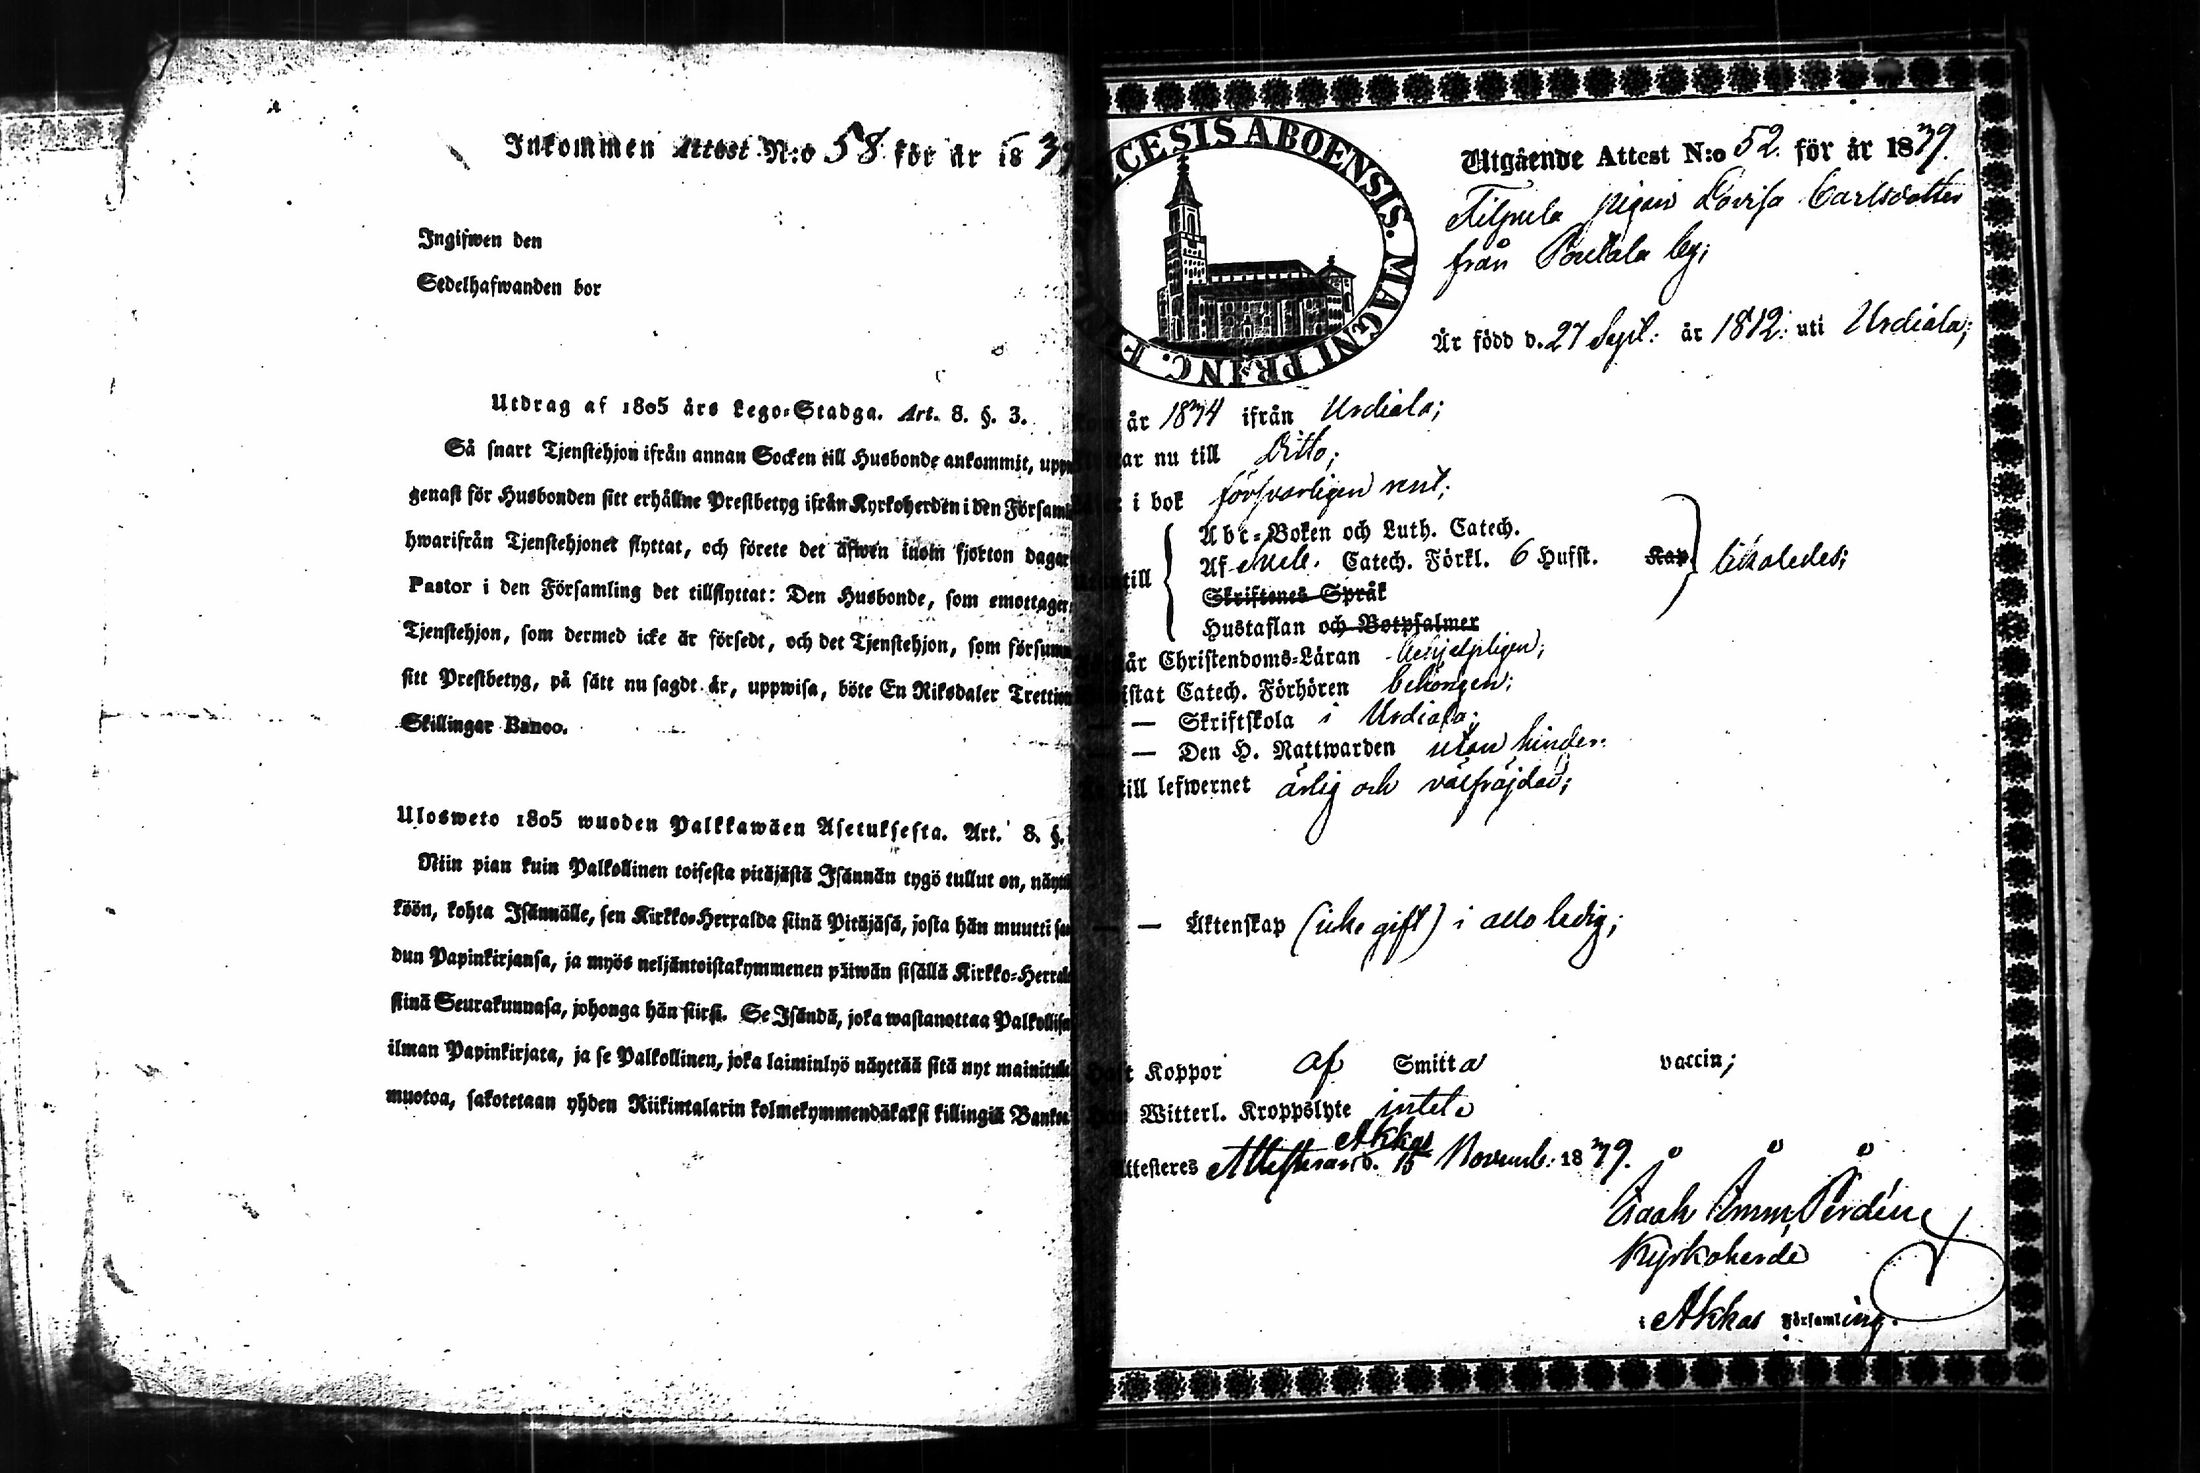 Inkommen Attest N:o 58 för år 1839
Ingifwen den
Sedelhafwanden bor
Utdrag af 1805 års Lego-Stadga. Art. 8. §. 3.
Så snart Tjenstehjon ifrån annan Socken till Husbonde ankommit, upp
genast för Husbonden sitt erhållne Prestbetyg ifrån Kyrkoherden i den Församl
hwarifrån Tjenstehjonet flyttat, och förete det äfwen inom fjorton dagar
Pastor i den Församling det tillflyttat: Den Husbonde, som emottager
Tjenstehjon, som dermed icke är försedt, och det Tjenstehjon, som försum
sitt Prestbetyg, på sätt nu sagdt är, uppwisa, böte En Riksdaler Trettio
Skillingar Banco.
Ulosweto 1805 wuoden Palkkawäen Asetuksesta. Art. 8. §.
Niin pian kuin Palkollinen toisesta pitäjästä Isännän tygö tullut on, näyt
köön, kohta Isännälle, sen Kirkko-Herralda siinä Pitäjäsä, josta hän muutti saa
dun Papinkirjansa, ja myös neljäntoistakymmenen päiwän sisällä Kirkko-Herral
siinä Seurakunnasa, johonga hän siirsi. Se Isändä, joka wastanottaa Palkollisen
ilman Papinkirjata, ja se Palkollinen, joka laiminlyö näyttää sitä nyt mainitulla
muotoa, sakotetaan yhden Riikintalarin kolmekymmendäkaksi killingiä Bankos
CESIS ABOENSIS. MAGNI PRINC. F
Utgående Attest N:o 52. för år 1839.
pigan Lovisa Carlsdotter
från Pontala by;
Är född d. 27 Sept: år 1812: uti Urdiala;
år 1834 ifrån Urdiala;
ar nu till Ditto;
i bok försvarligen rent;
Abc-Boken och Luth. Catech.
till Af Catech. Förkl. 6 Hufst. Kap likaledes;
Skriftenes Språk
Hustaflan och Botpsalmer
år Christendoms-Läran behjelpligen;
istat Catech. Förhören behörigen;
— — Skriftskola i Urdiala;
— — Den H. Nattwarden utan hinder.
till lefwernet ärlig och välfräjdad;
— — Äktenskap (icke gift) i allo ledig;
Haft Koppor af Smitta vaccin;
Har Witterl. Kroppslyte intet.
Akkas
Attesteres d. 15 Novemb: 1839.
Isaak Imm. Perdén
Kyrkoherde
i Akkas Församling.